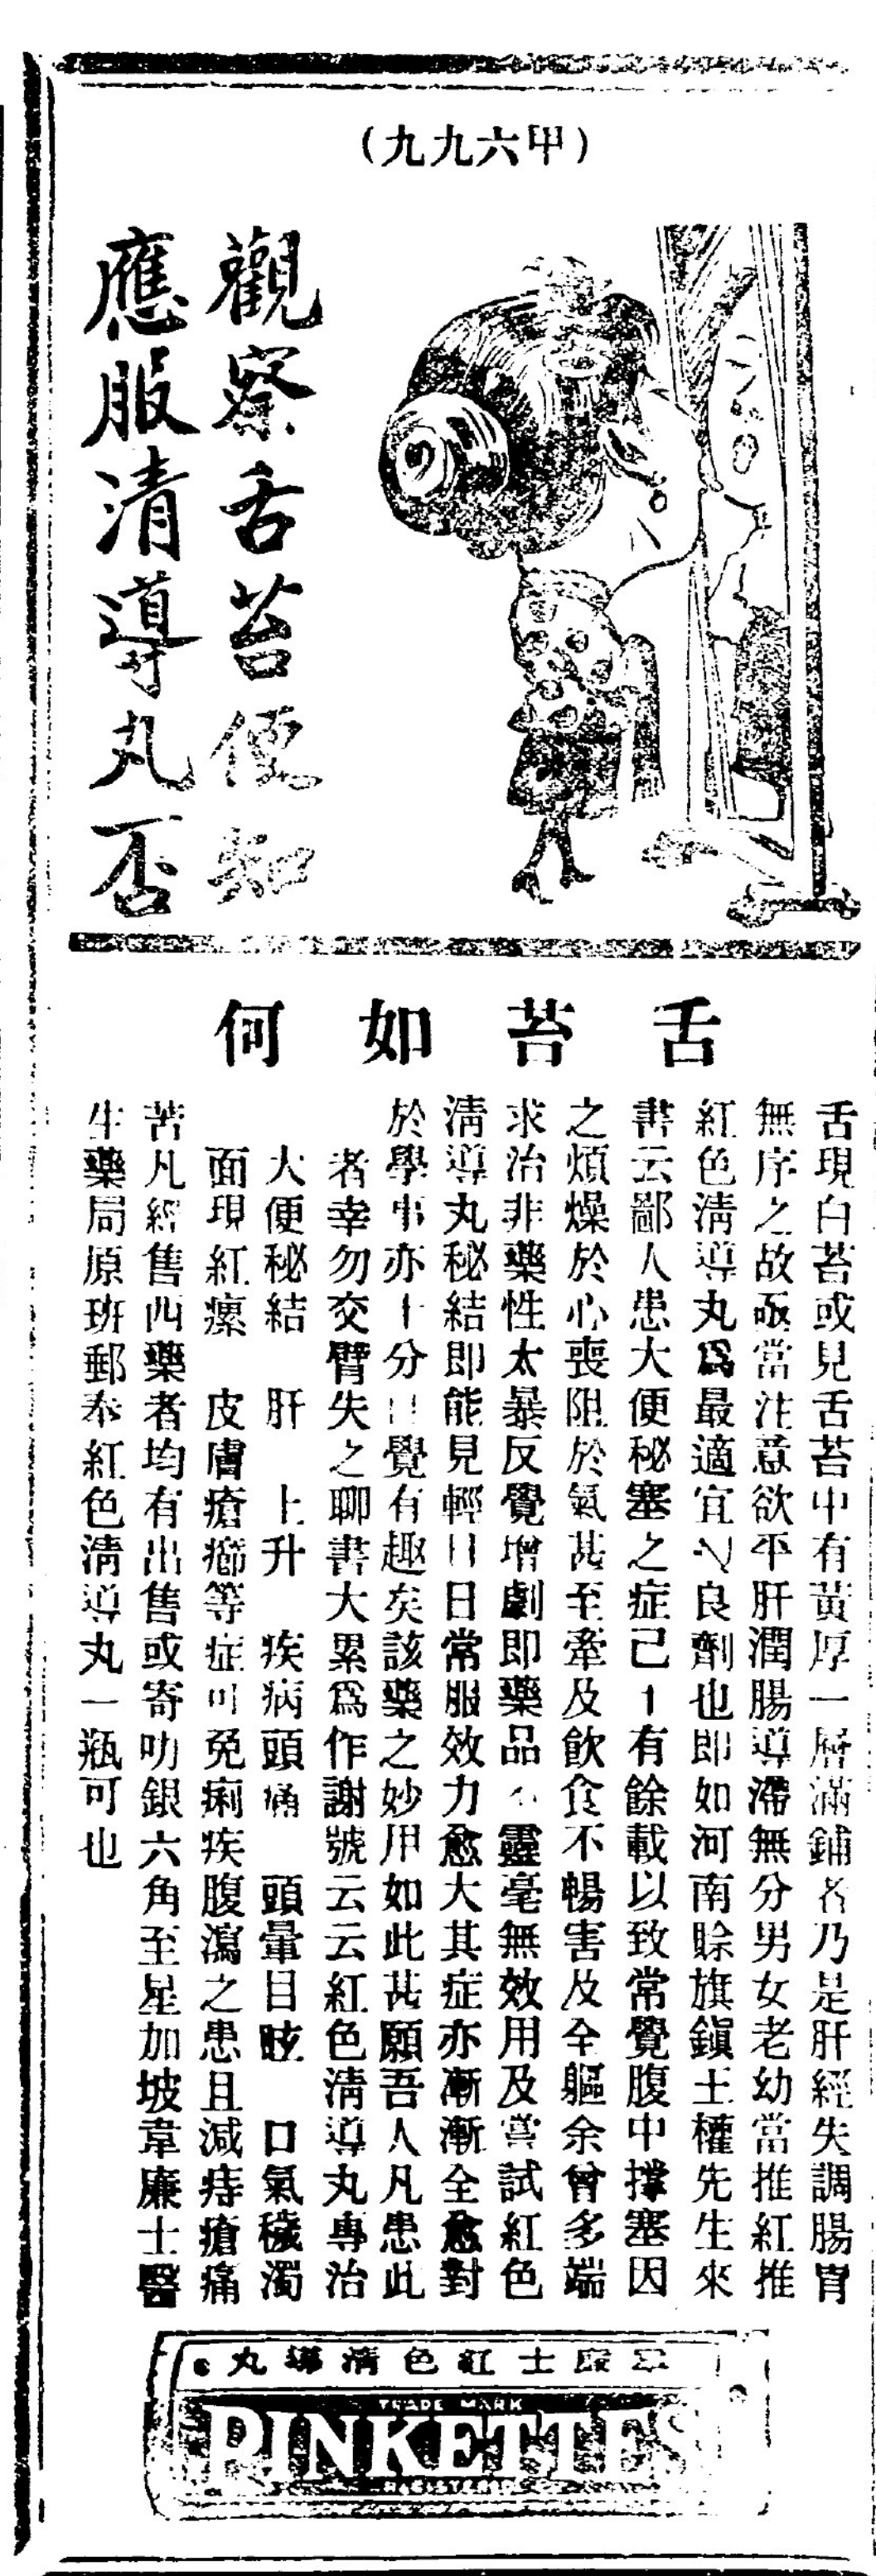 (甲六九九)
觀察舌苔便知
應服清導丸否
舌苔如何
舌現白苔或見舌苔中有黃厚一層滿鋪者乃是肝經失調腸胃
無序之故亟當注意欲平肝潤腸導滯無分男女老幼當推紅推
紅色淸導丸爲最適宜之良劑也卽如河南賒旗鎭王權先生來
書云鄙人患大便秘塞之症已十有餘載以致常覺腹中撑塞因
之煩燥於心喪阻於氣甚至牽及飮食不暢害及全軀余曾多端
求治非藥性太暴反覺增劇卽藥品不靈毫無效用及嘗試紅色
淸導丸秘結卽能見輕日日常服效力愈大其症亦漸漸全愈對
於學事亦十分日覺有趣矣該藥之妙用如此甚願吾人凡患此
者幸勿交臂失之聊書大累爲作謝號云云紅色淸導丸專治
大便秘結 肝 上升 疾病頭痛 頭暈目眩 口氣穢濁
面現紅瘰 皮膚瘡癤等症可免痢疾腹瀉之患且減痔瘡痛
苦凡經售西藥者均有出售或寄叻銀六角至星加坡韋廉士醫
生藥局原班郵奉紅色淸導丸一瓶可也
韋廉士紅色清導丸
TRADE MARK
PINKETTES
REGISTERED